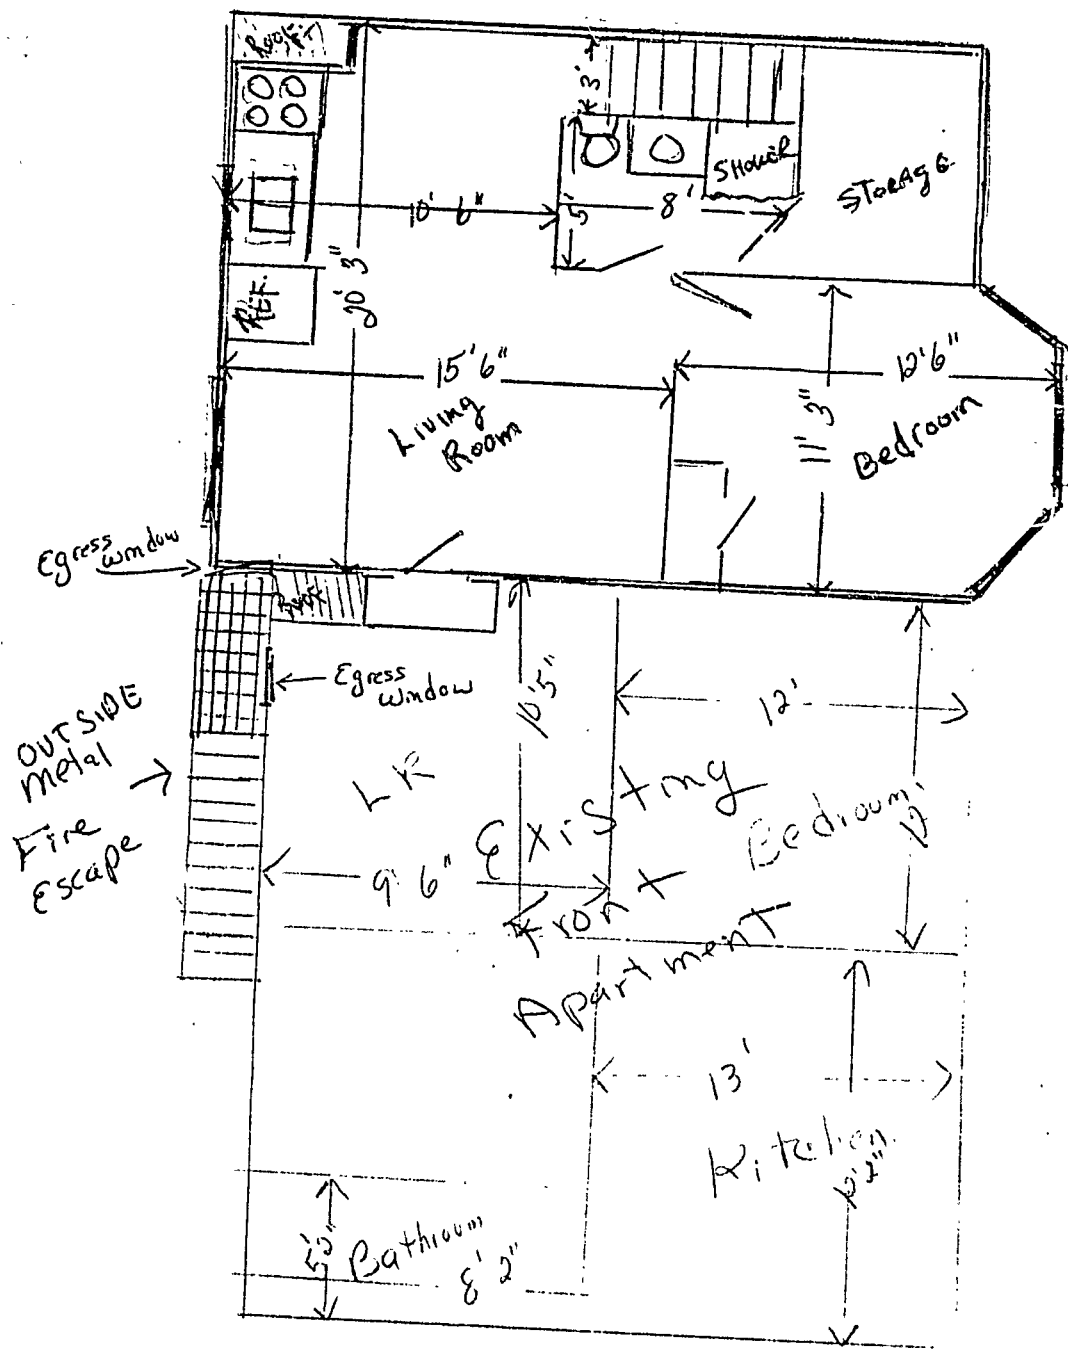 Roof
3'
SHOWER
STORAGE
10' 6"
5'
8'
20' 3"
REF.
15' 6"
12'6"
Living
Room
11' 3"
Bedroom
Egress
window
Roof
Egress
window
10'5"
12'
OUTSIDE
Metal
Fire
Escape
LR
Existing
Front
Apartment
Bedroom
9' 6"
13'
Kitchen
Bathroom
8' 2"